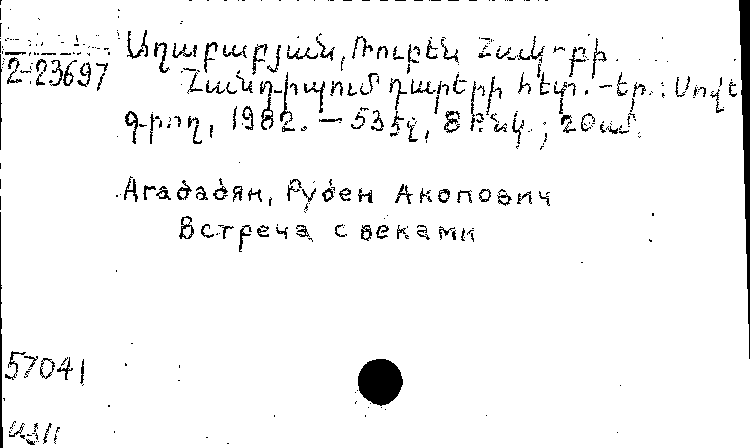 Աղաբաբյան, Ռուբեն Հակ-բի
2-23697
Հանդիպում դարերի հետ. -Եր.: Սովետ
գրող, 1982. — 53 էջ, 8 թ. նկ.; 20 սմ.
Агабабян, Рубен Акопович
Встреча с веками
57041